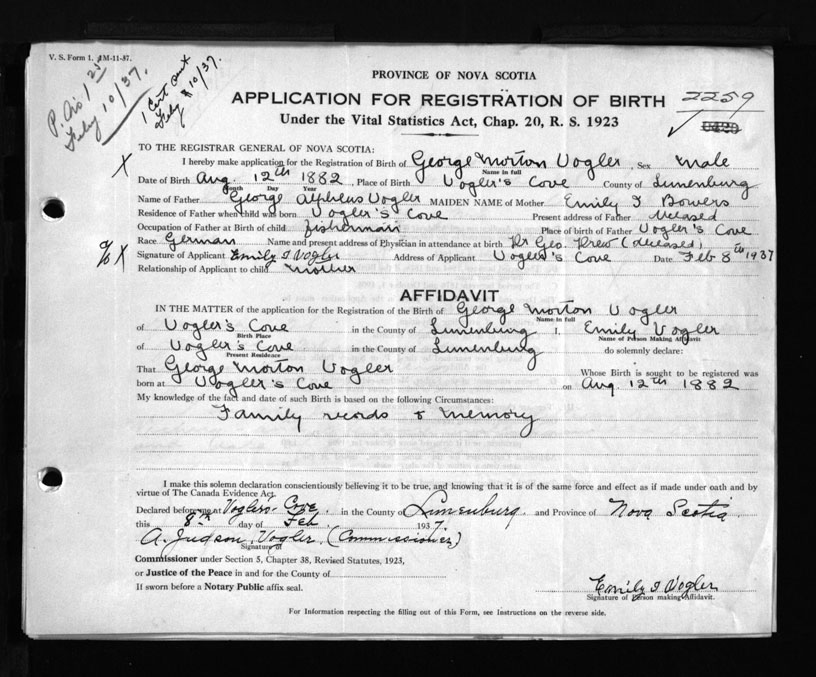 V. S. Form 1. M-11-37.
P. Ais 1 25
Feby 10/37.
1 Cert out
Feby 10/37.
PROVINCE OF NOVA SCOTIA
APPLICATION FOR REGISTRATION OF BIRTH 2259
Under the Vital Statistics Act, Chap. 20, R. S. 1923
TO THE REGISTRAR GENERAL OF NOVA SCOTIA:
X I hereby make application for the Registration of Birth of George Morton Vogler, Sex male
Name in full
Date of Birth Aug. 12th 1882, Place of Birth Vogler's Cove County of Lunenburg
Month Day Year
Name of Father George Alpheus Vogler MAIDEN NAME of Mother Emily I Bowers
Residence of Father when child was born Vogler's Cove Present address of Father Deceased
Occupation of Father at Birth of child fisherman Place of birth of Father Vogler's Cove
Race German Name and present address of Physician in attendance at birth Dr Geo. Drew (deceased)
X Signature of Applicant Emily I Vogler Address of Applicant Vogler's Cove Date Feb 8th 1937
Relationship of Applicant to child mother
AFFIDAVIT
IN THE MATTER of the application for the Registration of the Birth of George Morton Vogler
Name in full
of Vogler's Cove in the County of Lunenburg I, Emily Vogler
Birth Place Name of Person Making Affidavit
of Vogler's Cove in the County of Lunenburg do solemnly declare:
Present Residence
That George Morton Vogler Whose Birth is sought to be registered was
born at Vogler's Cove on Aug. 12th 1882
My knowledge of the fact and date of such Birth is based on the following Circumstances:
Family records & memory
I make this solemn declaration conscientiously believing it to be true, and knowing that it is of the same force and effect as if made under oath and by
virtue of The Canada Evidence Act.
Declared before me at Vogler's Cove in the County of Lunenburg and Province of Nova Scotia
this 8th day of Feb. 1937.
A. Judson Vogler (Commissioner)
Signature of
Commissioner under Section 5, Chapter 38, Revised Statutes, 1923,
or Justice of the Peace in and for the County of
If sworn before a Notary Public affix seal.
Emily I Vogler
Signature of Person making Affidavit.
For Information respecting the filling out of this Form, see Instructions on the reverse side.